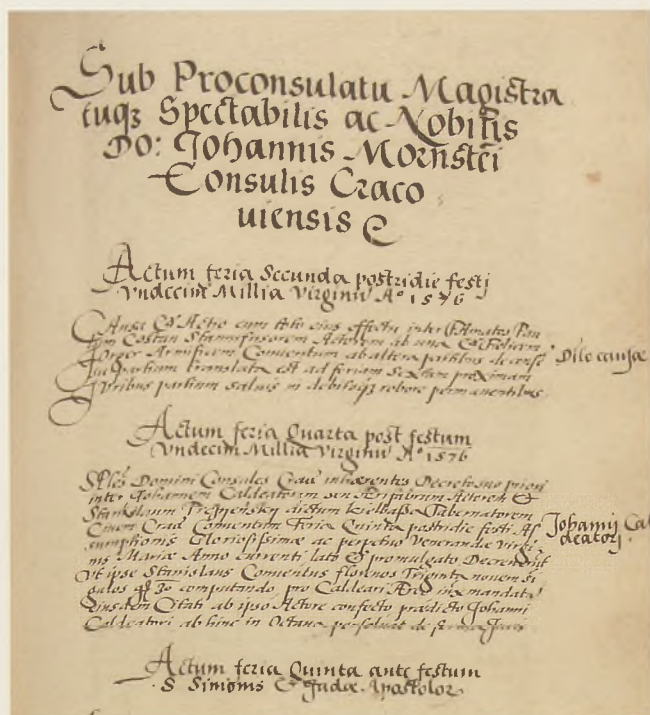 Sub Proconsulatu Magistra
tuqꝫ Spectabilis ac Nobilis
Do: Johannis Mornstei
Consulis Craco
uiensis
Actum feria Secunda postridie festj
Vndecim Millia Virginū Aº 1576
Causa et Actio cum toto eius effectu inter Famatos Pau
Costan Stannifusorem Actorem ab una et
Armificem Conuentum ab altera partibus de consẽ
partium translata est ad feriam Sextam proximam
Juribus partium saluis in debitoqꝫ robore permanentibus.
Dilo causæ
Actum feria Quarta post festum
Vndecim Millia Virginū Aº 1576
Domini Consules Crac̃ inhærentes Decreto suo priori
inter Johannem Caldeatorem seu Actorem et
Stanislaum dictum Tabernatorem
Ciuem Crac̃ Conuentum Feria Quinta postridie festi As
sumptionis Gloriosissimæ ac perpetuo Venerandæ Virgi
nis Mariæ Anno currenti lato et promulgato Decreuerũt
Vt ipse Stanislaus Conuentus florenos Triginta nouem
gulos 30 computando pro ex mandato
eiusdem Citati ab ipso Actore confecto prædicto Johanni
Caldeatori ab hinc in Octaua persoluat de forma Juris
Johannij Cal
deatorj
Actum feria Quinta ante festum
S Simonis et Judæ Apostolor